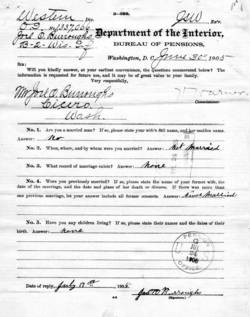 Western Div.
3-389.
Joel O. Burroughs
B-2-Wis. Inf
Department of the Interior,
BUREAU OF PENSIONS,
Washington, D. C., June 30, 1905
Sir:
Will you kindly answer, at your earliest convenience, the questions enumerated below? The
information is requested for future use, and it may be of great value to your family.
Very respectfully,
Mr Joel O. Burroughs
Cicero,
Wash.
Commissioner.
No. 1. Are you a married man? If so, please state your wife's full name, and her maiden name.
Answer: No
No. 2. When, where, and by whom were you married? Answer: Not Married
No. 3. What record of marriage exists? Answer: None
No. 4. Were you previously married? If so, please state the name of your former wife, with
the date of the marriage, and the date and place of her death or divorce. If there was more than
one previous marriage, let your answer include all former consorts. Answer: Never Married
No. 5. Have you any children living? If so, please state their names and the dates of their
birth. Answer: None
Date of reply, July 13th, 1905
(Signature.)